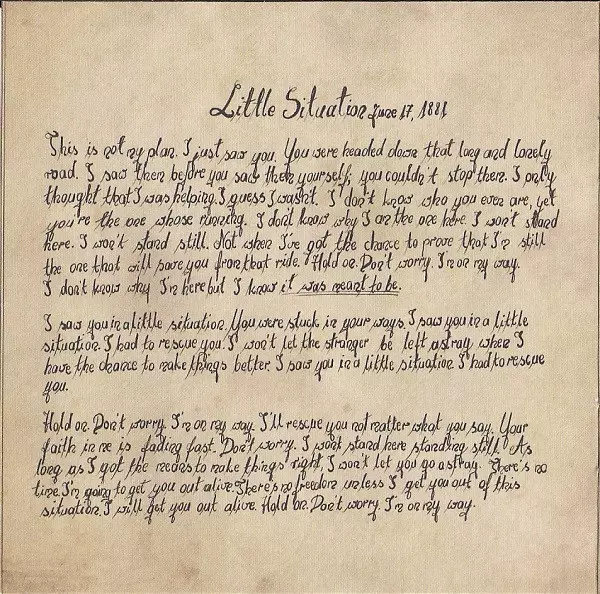 Little Situation June 17, 1881
This is not my plan. I just saw you. You were headed down that long and lonely
road. I saw them before you saw them yourself, you couldn't stop them. I only
thought that I was helping. I guess I wasn't. I don't know who you even are, yet
you're the one whose running. I don't know why I am the one here. I won't stand
here. I won't stand still. Not when I've got the chance to prove that I'm still
the one that will save you from that ride. Hold on. Don't worry. I'm on my way.
I don't know why I'm here but I know it was meant to be.
I saw you in a little situation. You were stuck in your ways. I saw you in a little
situation. I had to rescue you. I won't let the stranger be left astray when I
have the chance to make things better. I saw you in a little situation. I had to rescue
you.
Hold on. Don't worry. I'm on my way. I'll rescue you not matter what you say. Your
faith in me is fading fast. Don't worry. I won't stand here standing still. As
long as I got the means to make things right, I won't let you go astray. There's no
time. I'm going to get you out alive. There's no freedom unless I get you out of this
situation. I will get you out alive. Hold on. Don't worry. I'm on my way.